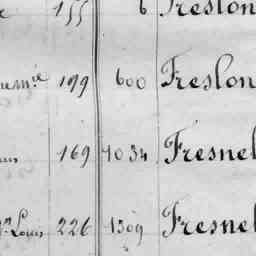 155 6 Freslon
199 600 Freslon
169 1034 Fresnel
Louis 226 1309 Fresnel